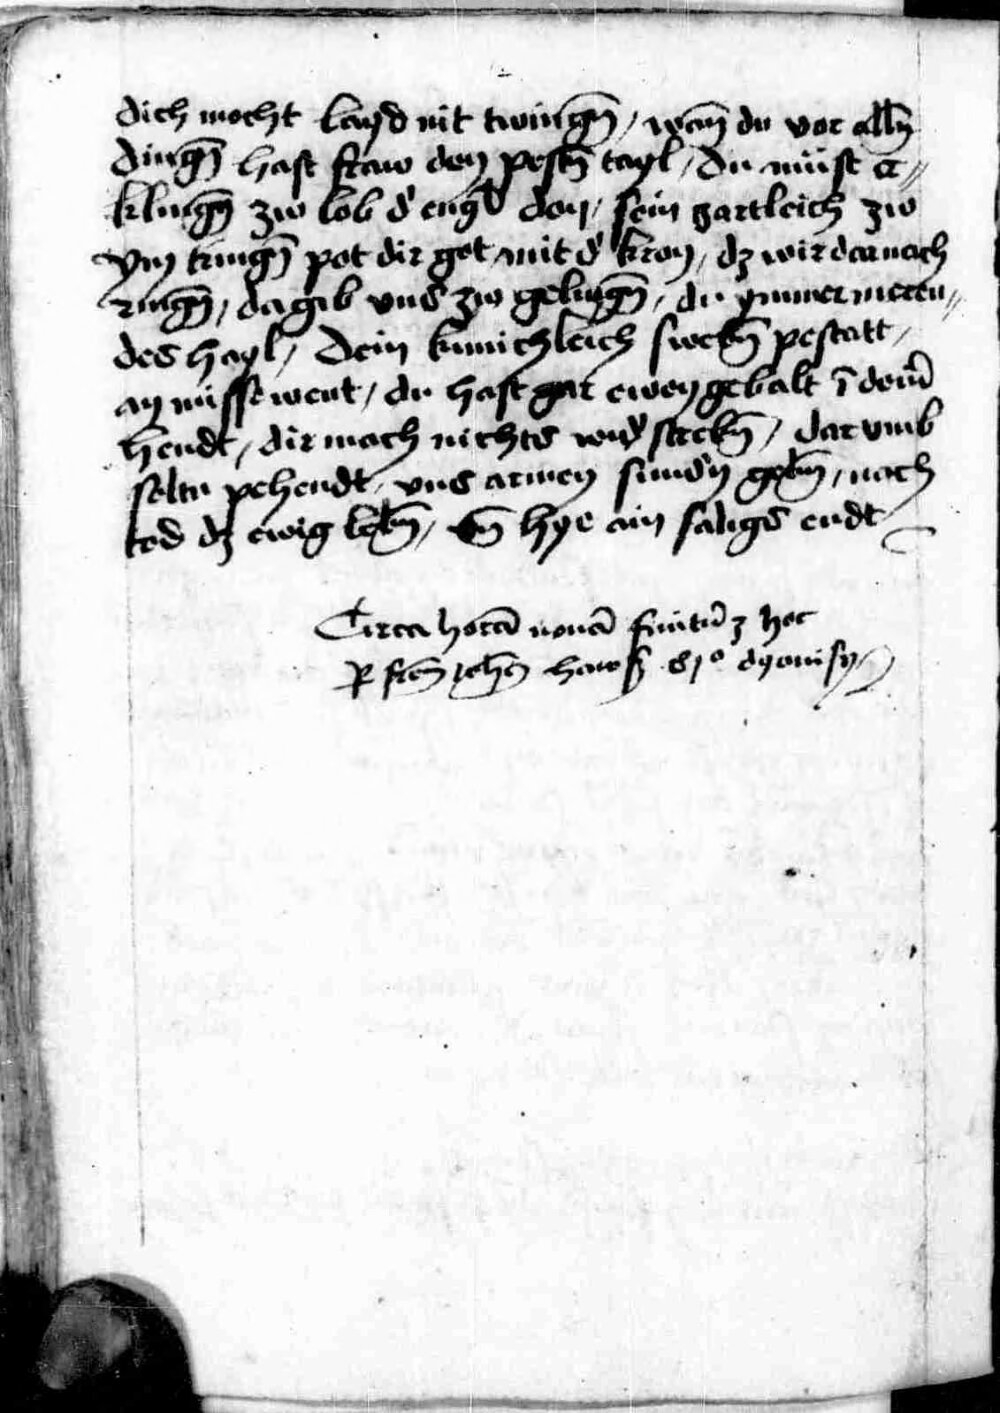 dich mocht layd nit twingn̄ / wan̄ du vor alln̄
dingn̄ hast fraw den pestn̄ tayl / du müst er〃
klingn̄ zw lob d' engl don / sein zartleich zw
ym tringn̄ pot dir got mit d' kron / dz wir darnach
ringn̄ / da gib vns zw gelingn̄ / du ymmer meren〃
des hayl / Dein kunichleich swebn̄ pestatt /
an missewent / du hast gar ewen gebalt ī dein̄
hendt / dir mach nichts wid' strebn̄ / darvmb
soltu pehendt / vns armen sund'n gebn̄ / nach
tod dz ewig lebn̄ / vn̄ hye ain saligs endt
Circa horā nonā finitū z hoc
ꝑ frēm Johēm 61° dyonisy